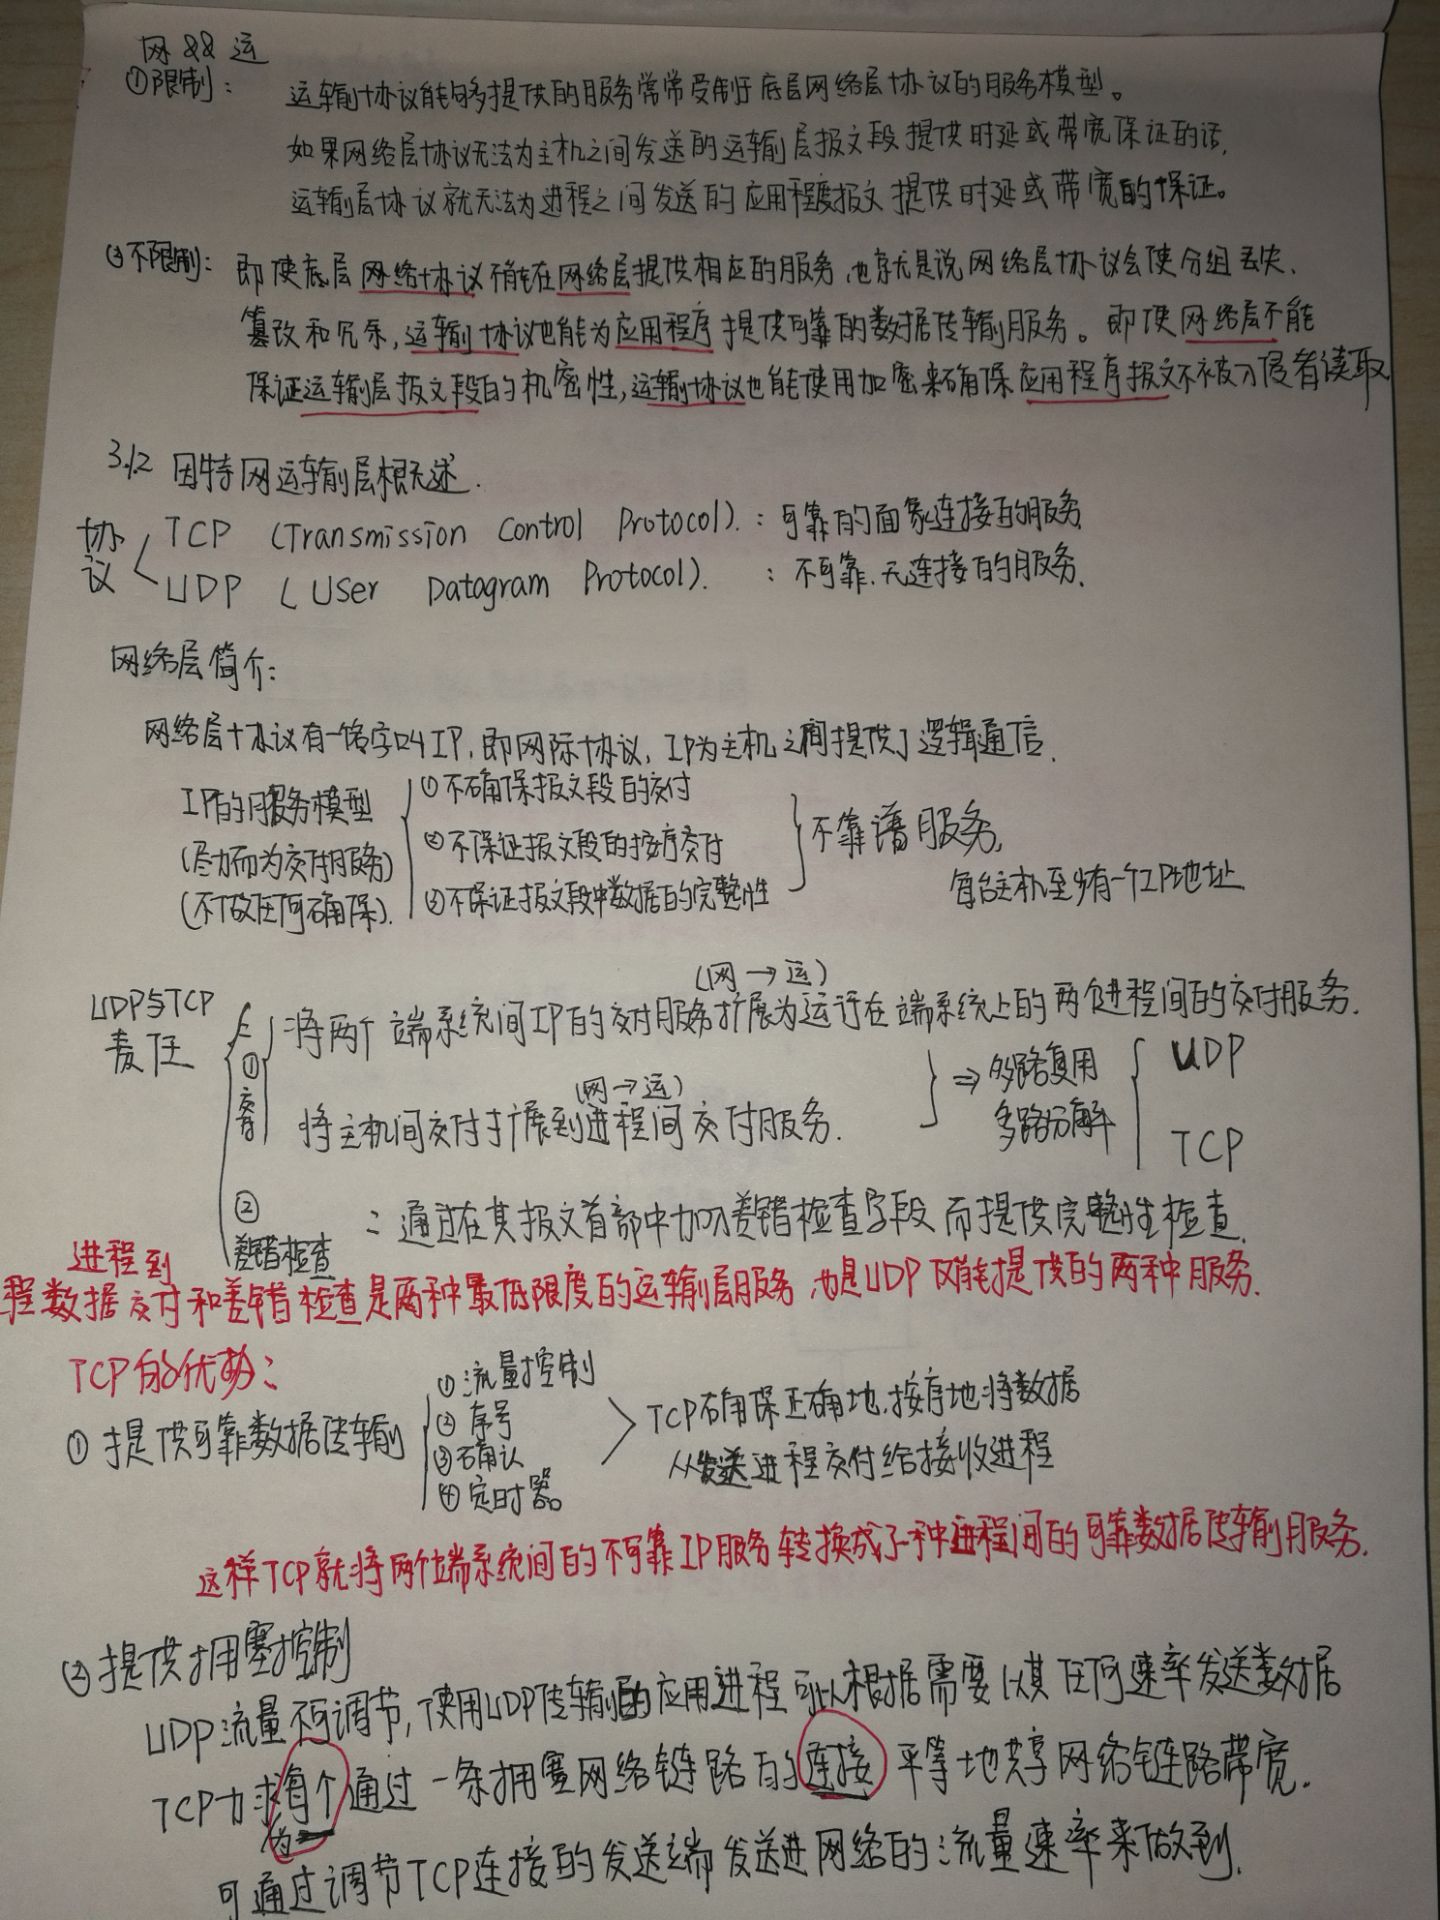 网 && 运
①限制：
运输协议能够多提供的服务常常受制于底层网络层协议的服务模型。
如果网络层协议无法为主机之间发送的运输层报文段提供时延或带宽保证的话,
运输层协议就无法为进程之间发送的应用程度报文提供时延或带宽的保证。
②不限制：即使底层网络协议不能在网络层提供相应的服务,也就是说网络层协议会使分组丢失、
篡改和冗余,运输协议也能为应用程序提供可靠的数据传输服务。即使网络层不能
保证运输层报文段的机密性,运输协议也能使用加密来确保应用程序报文不被入侵者读取
3.1.2 因特网运输层概述.
协议
TCP (Transmission Control Protocol). : 可靠的面象连接的服务
UDP (User Datagram Protocol). : 不可靠.无连接的服务.
网络层简介:
网络层协议有一名字叫IP,即网际协议,IP为主机之间提供了逻辑通信.
IP的服务模型
(尽力而为交付服务)
(不做任何确保).
①不确保报文段的交付
②不保证报文段的按序交付
③不保证报文段中数据的完整性
不靠谱服务,
每台主机至少有一个IP地址
UDP与TCP
责任
①交付
(网→运)
:将两个端系统间IP的交付服务扩展为运行在端系统上的两个进程间的交付服务.
(网→运)
将主机间交付扩展到进程间交付服务.
⇒ 多路复用
多路分解
UDP
TCP
②
差错检查
: 通过在其报文首部中加入差错检查字段而提供完整性检查.
进程到
程数据交付和差错检查是两种最低限度的运输层服务,也是UDP仅能提供的两种服务.
TCP的优势:
①提供可靠数据传输
①流量控制
②序号
③确认
④定时器
TCP确保正确地.按序地将数据
从发送进程交付给接收进程
这样TCP就将两个端系统间的不可靠IP服务转换成了一种进程间的可靠数据传输服务.
②提供拥塞控制
UDP流量不可调节,使用UDP传输的应用进程可以根据需要以其任何速率发送数据
TCP力求为每个通过一条拥塞网络链路的连接平等地共享网络链路带宽.
可通过调节TCP连接的发送端发送进网络的流量速率来做到.